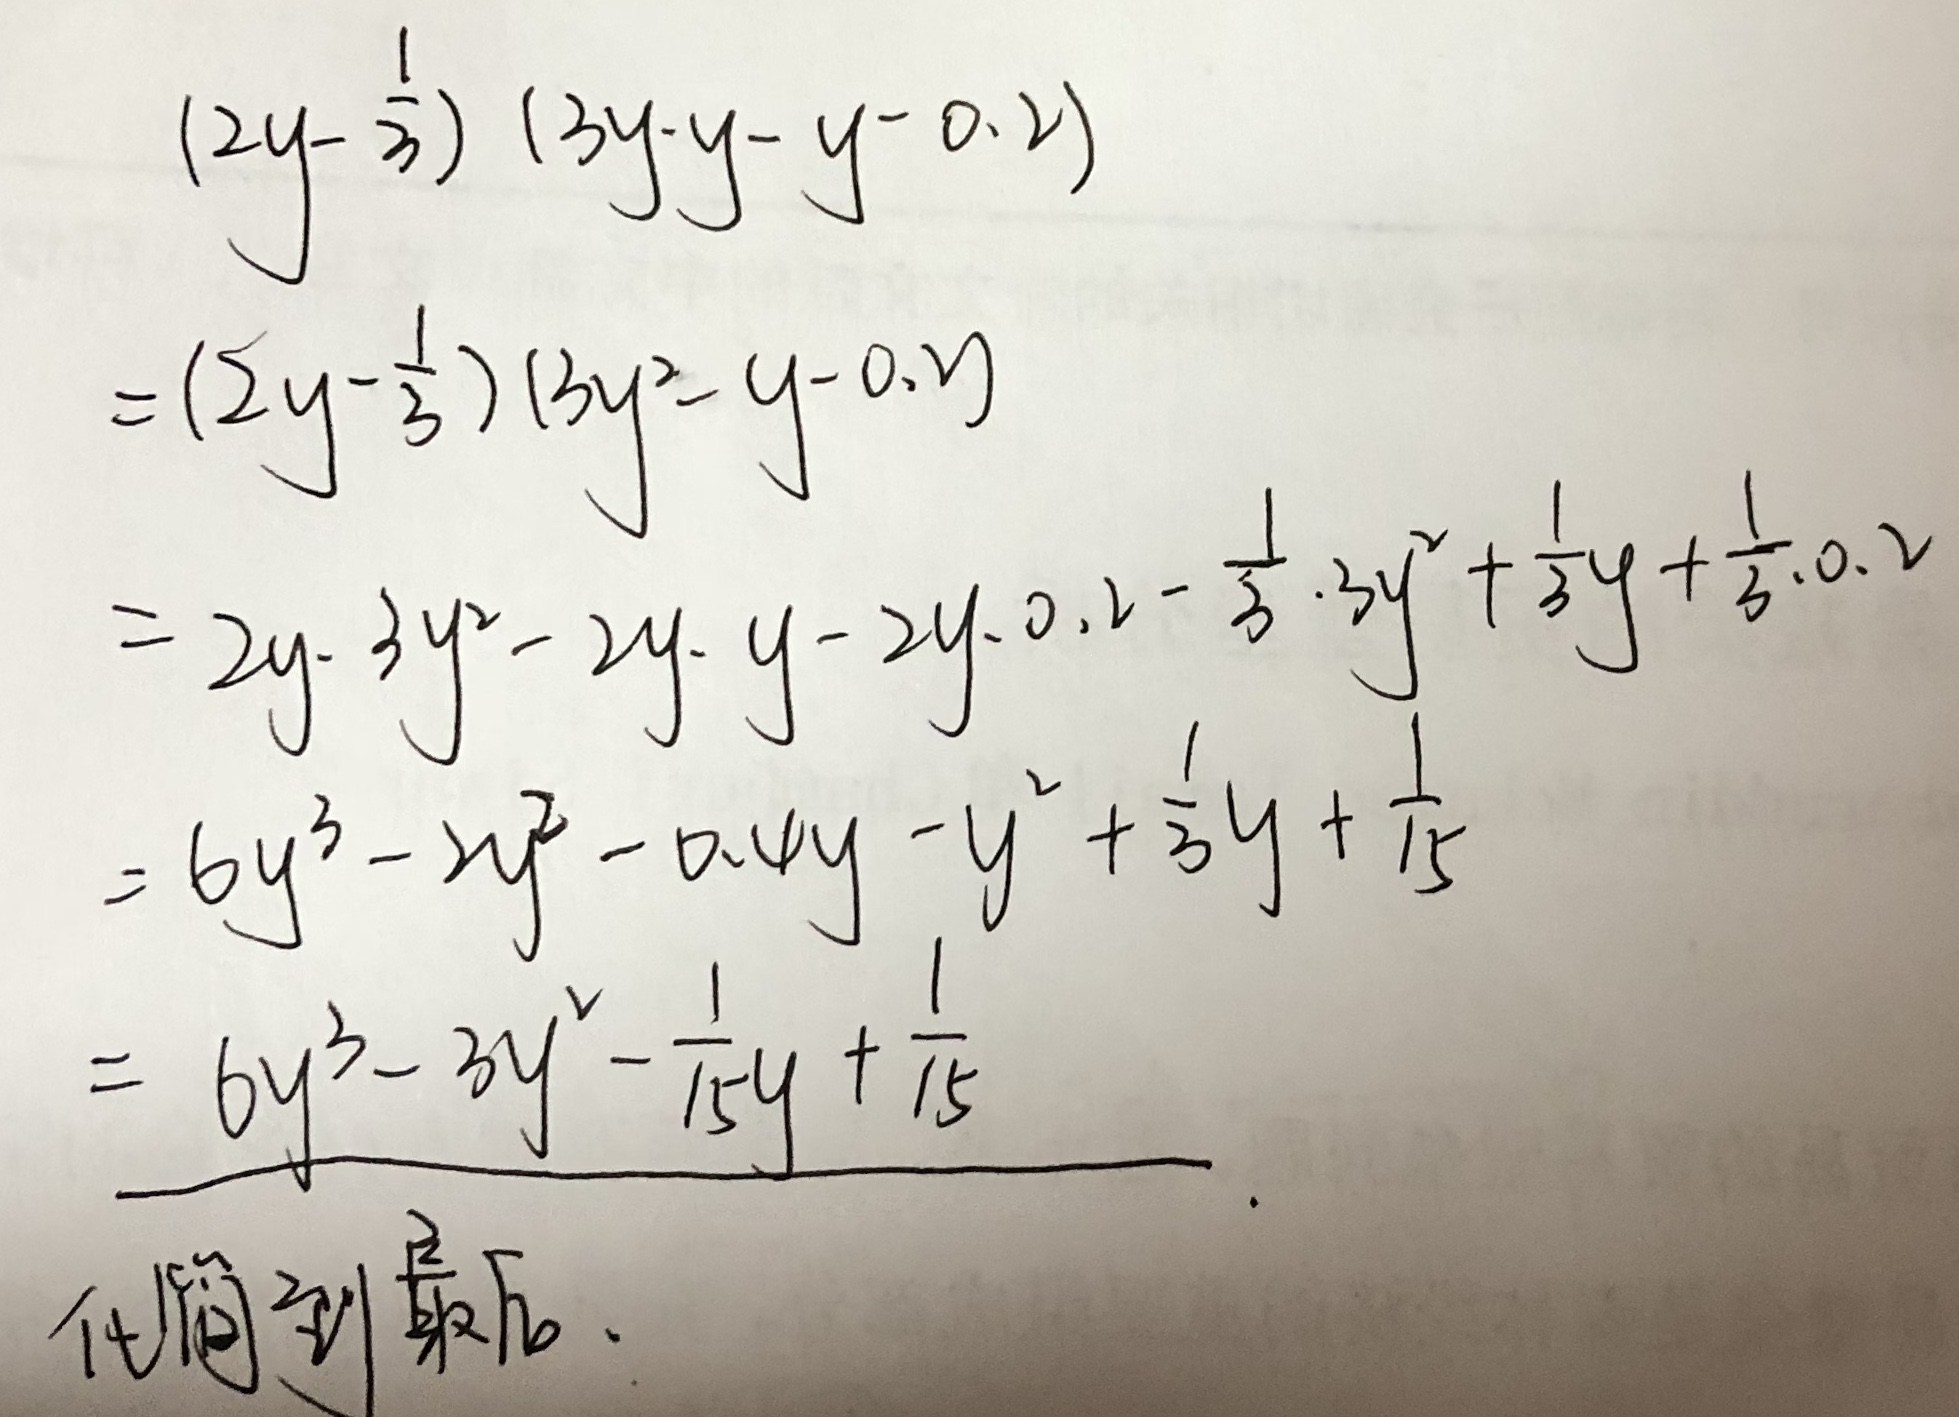 (2y-\frac{1}{3}) (3y·y-y-0.2)
=(2y-\frac{1}{3})(3y²-y-0.2)
=2y·3y²-2y·y-2y·0.2-\frac{1}{3}·3y²+\frac{1}{3}y+\frac{1}{3}·0.2
=6y³-2y²-0.4y-y²+\frac{1}{3}y+\frac{1}{15}
=6y³-3y²-\frac{1}{15}y+\frac{1}{15}
化简到最后.